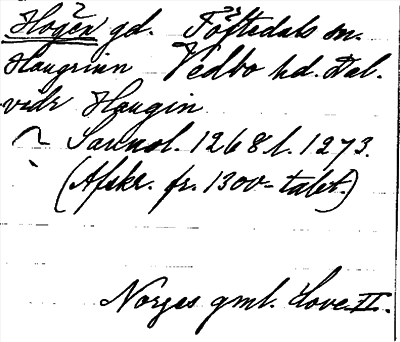 Högen gd. Töftedals sn.
Haugrinn Vedbo hd. Dal.
vidr Haugin
Sannol. 1268 l. 1273.
(Afskr. fr. 1300-talet.)
Norges gml. Love II.